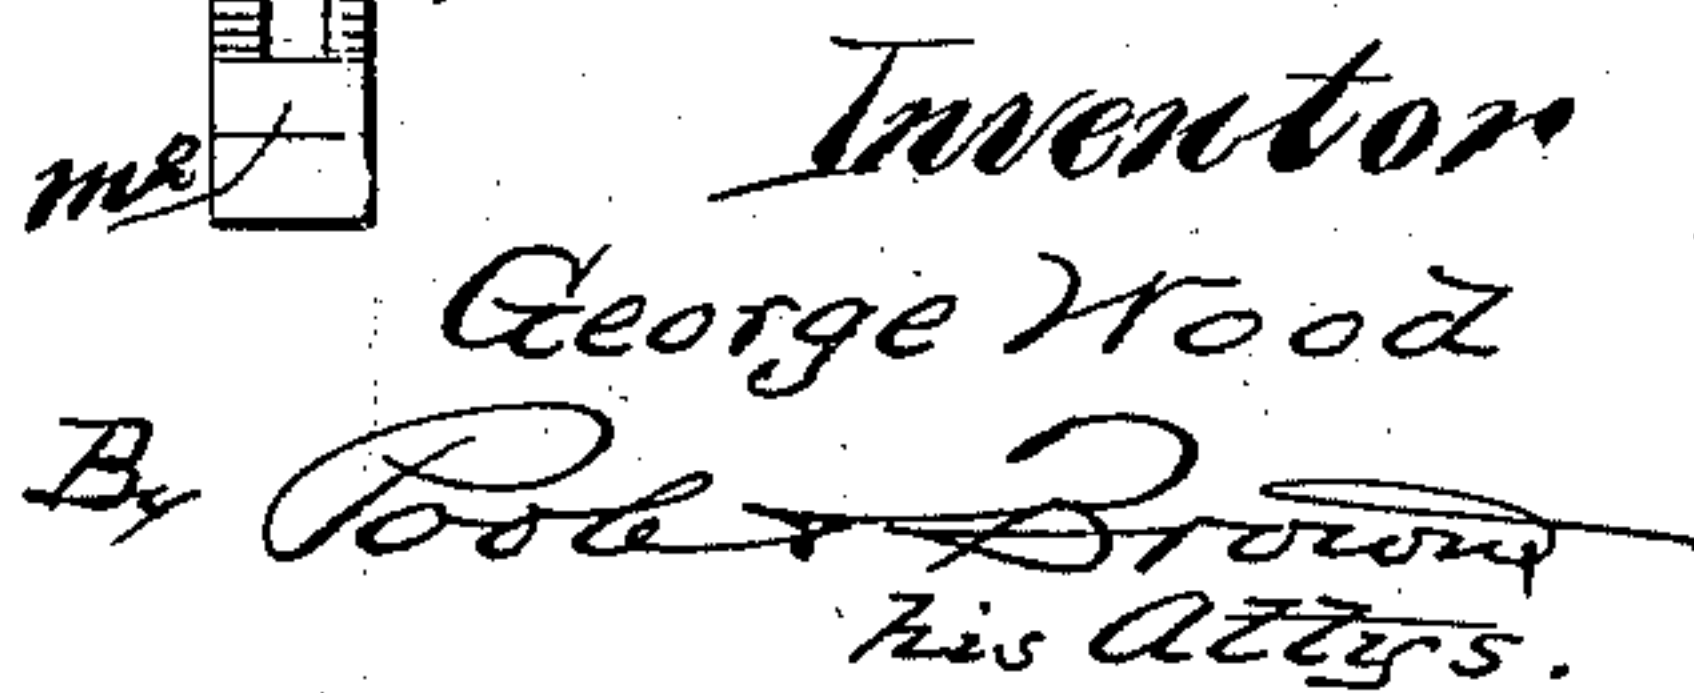 Inventor
m²
George Wood
By Poole & Brown
his Attys.